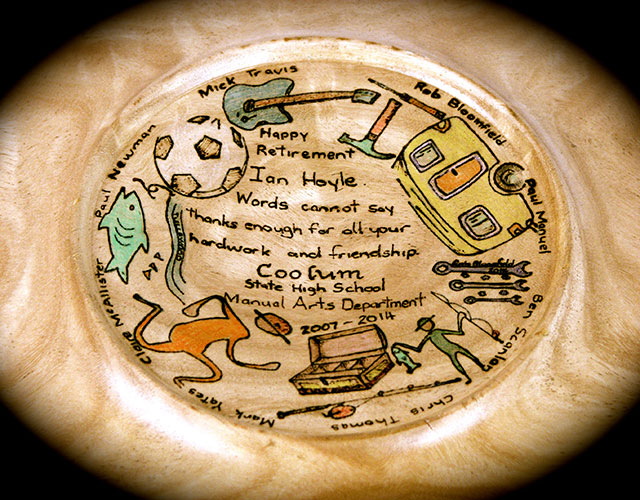 Mick Travis
Rob Bloomfield
Paul Newman
Happy
Retirement
Ian Hoyle.
Words cannot say
thanks enough for all your
hardwork and friendship.
Coolum
State High School
Manual Arts Department
2007-2014
Paul Manuel
Ben Scanlon
Chris Thomas
Mark Yates
Claire McAllister